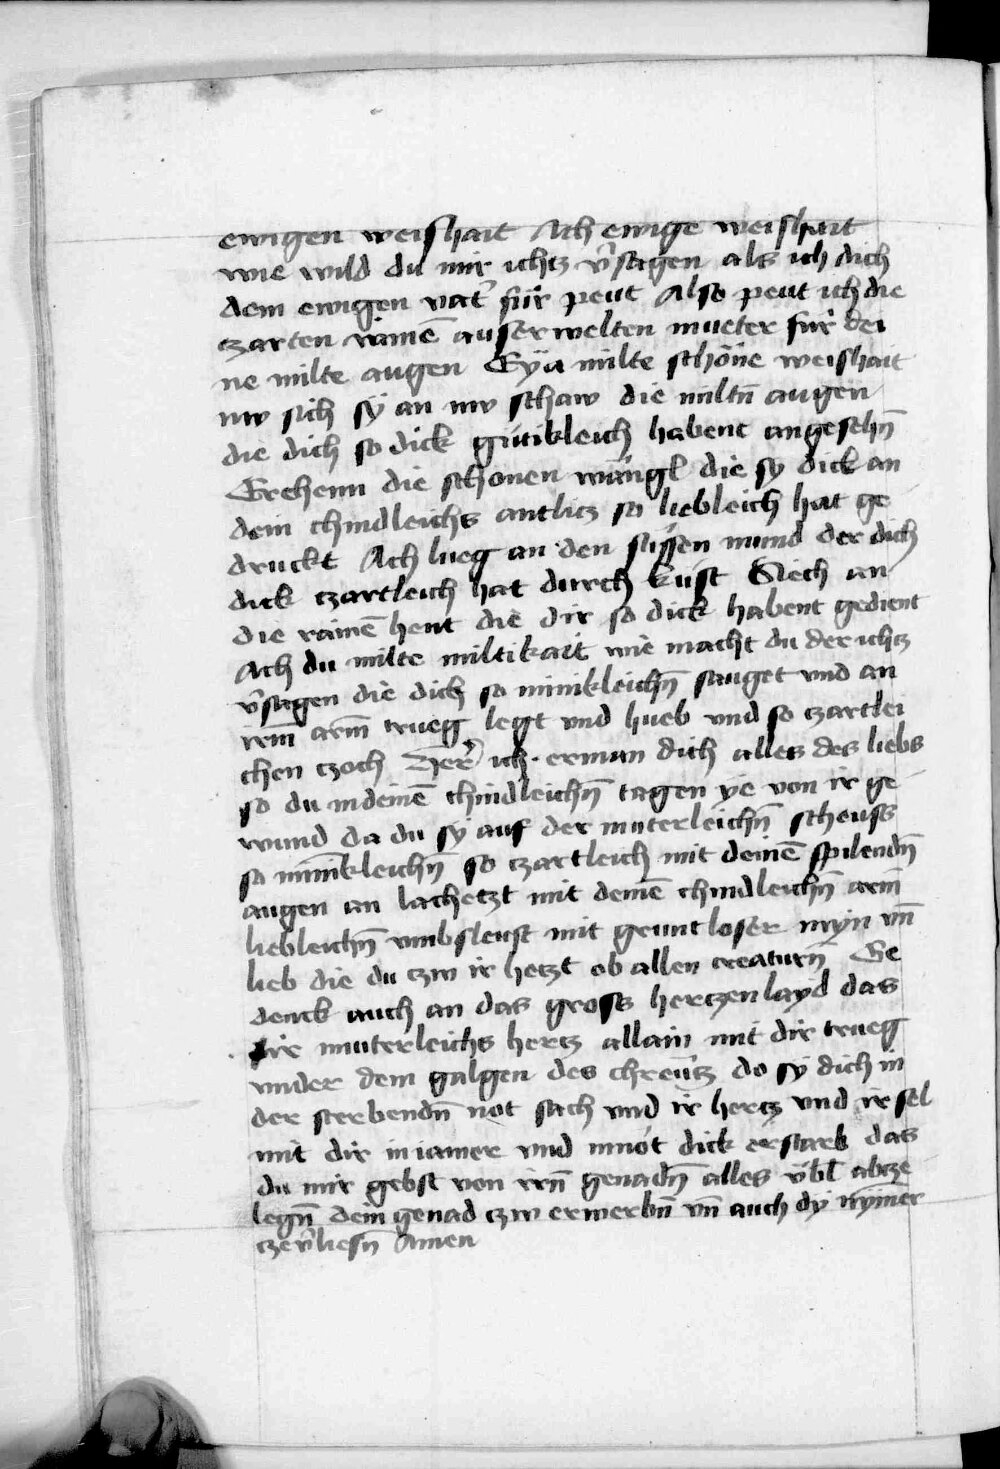 ewigen weishait Ach ewige weishait
wie wild du mir ichtz v̄sagen als ich dich
dem ewigen vat' für peut Also peut ich die
czarten rainē auserwelten mueter für dei
ne milte augen Eÿa milte schöne weishait
nw sich sÿ an nw schaw die miltn̄ augen
die dich so dick gütikleich habent angesehn̄
Erchenn die schonen wängl die sy dick an
dein chindleichs antlicz so liebleich hat ge
druckt Ach lueg an den süssen mund der dich
dick czartleich hat durch küst Siech an
die rainē hent die dir so dick habent gedient
Ach du milte miltikait wie macht du der ichtz
v̄sagen die dich so minikleichn̄ sauget vnd an
irm̄ arm̄ trueg legt vnd hueb vnd so czartlei
chen czoch Her' ich erman dich alles des liebs
so du in deinē chindleichn̄ tagen ÿe von ir ge
wund da du sÿ auf der muterleichn̄ schouss
so minikleichn̄ so czartleich mit deinē spilendn̄
augen an lachetzt mit deinē chindleichn̄ arm̄
liebleichn̄ vmbsleust mit gruntloser mÿn vn̄
lieb die du czw ir hetzt ob allen creaturn̄ Ge
denck auch an das gross herczenlayd das
ir muterleichs hercz allain mit dir trueg
vnder dem galgen des chreücz do sÿ dich in
der sterbendn̄ not sach vnd ir hercz vnd ir sel
mit dir in iamer vnd in not dick erstarb das
du mir gebst von irn̄ genadn̄ alles vbl abcze
legn̄ dein genad czw erwerbn̄ vn̄ auch dÿ nÿmer
cze v̄liesn̄ Amen